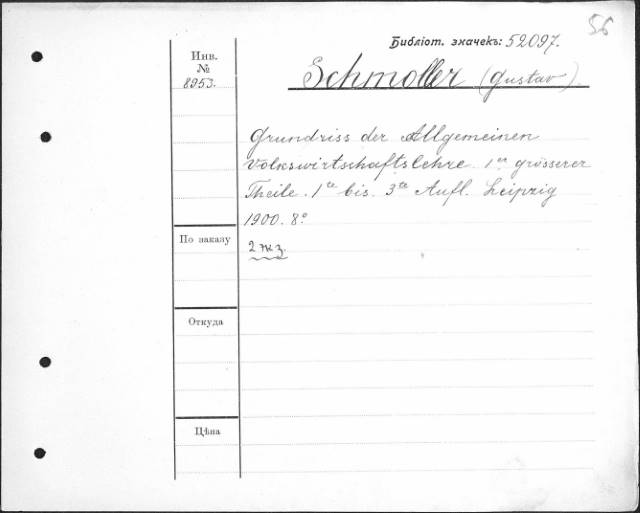 56
Библіот. значекъ: 52097.
Инв.
№
8953.
Schmoller (Gustav)
Grundriss der Allgemeinen
Volkswirtschaftslehre. 1er grösserer
Theile. 1te bis. 3te Aufl. Leipzig
1900. 8°
По заказу
2 экз.
Откуда
Цѣна